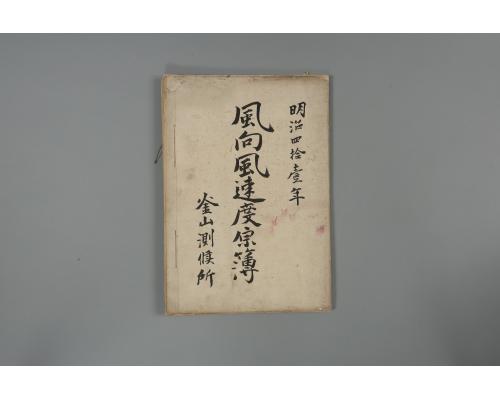 明治四拾壹年
風向風速度原簿
釜山測候所